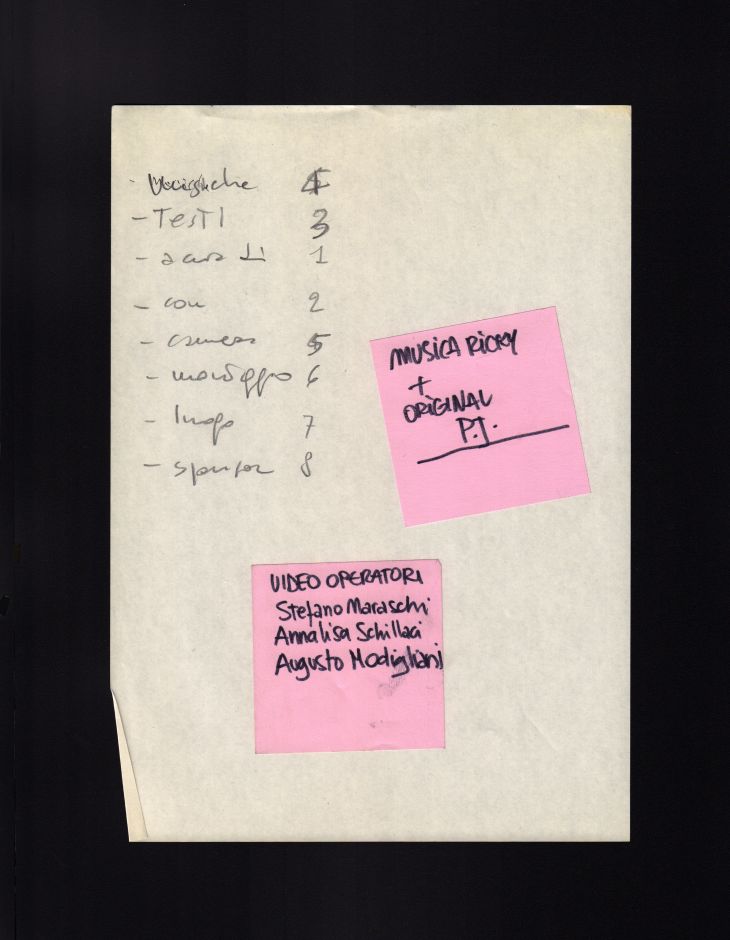 Musiche 4
- TESTI 3
- a cura di 1
- con 2
- camera 5
- montaggio 6
- luogo 7
- sponsor 8
MUSICA RICKY
+
ORIGINAL
P.J.
VIDEO OPERATORI
Stefano Maraschi
Annalisa Schillaci
Augusto Modigliani